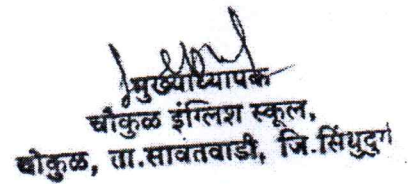 मुख्याध्यापक
चौकुळ इंग्लिश स्कूल,
चौकुळ, ता.सावंतवाडी, जि.सिंधुदुर्ग